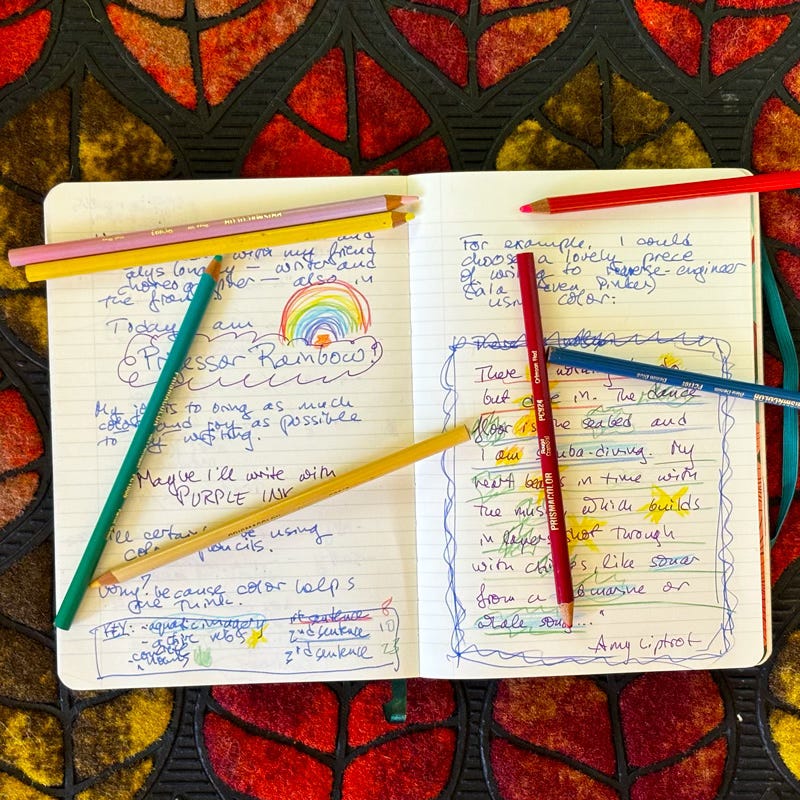 with my friend
Alys Longley — writer and
choreographer — also in
the fron
Today I am
Professor Rainbow!
My job is to bring as much
color and joy as possible
to my writing.
Maybe I'll write with
PURPLE INK
certain be using
pencils.
Why? because color helps
me think.
KEY: - aquatic imagery
- active verbs
- concrete nouns
1st sentence 8
2nd sentence 10
3rd sentence 23
For example, I could
choose a lovely piece
of writing to reverse-engineer
(à la Steven Pinker)
using color:
There
but in. The dance
floor is the seabed and
I am scuba-diving. My
heart beats in time with
the music, which builds
in layers shot through
with chimes, like sonar
from a submarine or
whale song..."
Amy Liptrot
PRISMACOLOR
PC924
Crimson Red
PRISMACOLOR